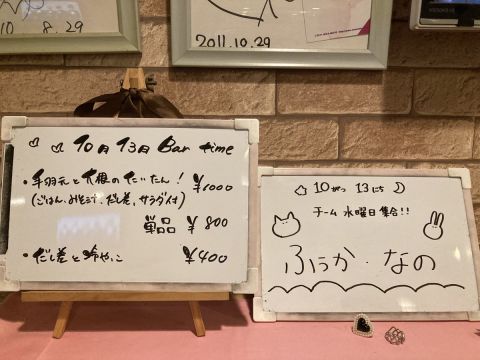 10 8.29
2011.10.29
10月13日 Bar time
・手羽元と大根のたいたん! ¥1000
(ごはん、おみそ汁、だし巻、サラダ付)
単品 ¥800
・だし巻と冷やっこ ¥400
10がつ 13にち
チーム 水曜日 集合!!
ふうか・なの